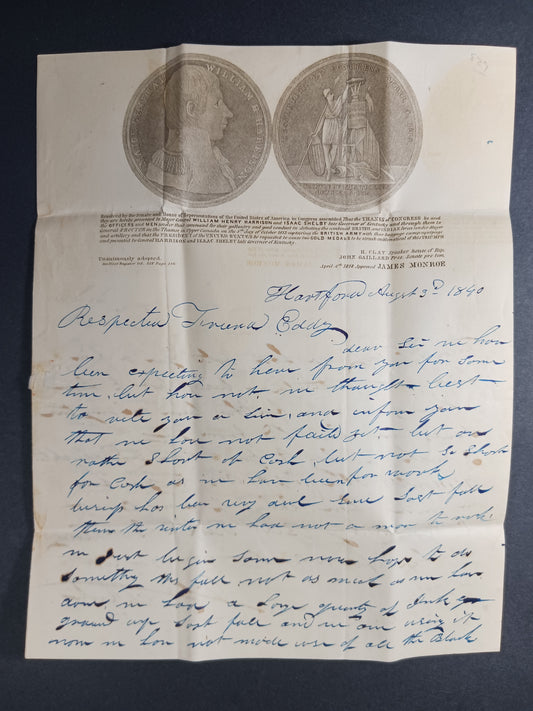 MAJOR GENERAL WILLIAM H. HARRISON
Resolved by the Senate and House of Representatives of the United States of America in Congress assembled That the THANKS of CONGRESS be and
they are hereby presented to Major General WILLIAM HENRY HARRISON and ISAAC SHELBY late Governor of Kentucky and through them to
the OFFICERS and MEN under their command for their gallantry and good conduct in defeating the combined BRITISH and INDIAN forces under Major
General PROCTOR on the Thames in Upper Canada on the 5th day of October 1813 capturing the BRITISH ARMY with their baggage camp equipage
and artillery and that the PRESIDENT of the UNITED STATES be requested to cause two GOLD MEDALS to be struck emblematical of this TRIUMPH
and presented to General HARRISON and ISAAC SHELBY late Governor of Kentucky
H. CLAY Speaker house of Rep.
Unanimously adopted.
JOHN GAILLARD Pres. Senate pro tem.
April 4th 1818 Approved JAMES MONROE
Hartford Augst 3d 1840
Respected Friend Eddy
dear Sir we have
been expecting to hear from you for some
time, but have not, we thought best
to write you a line, and inform you
that we have not failed yet. but are
rather Short of Cash, but not So Short
for Cash as we have been for work
has been very dull Since Last fall
then the winter we had not a man to work
we just begin Some now hope to do
Something this fall not as much as we have
done. we had a Large quantity of
ground up Last fall and we are using it
now we have not made use of all the Black